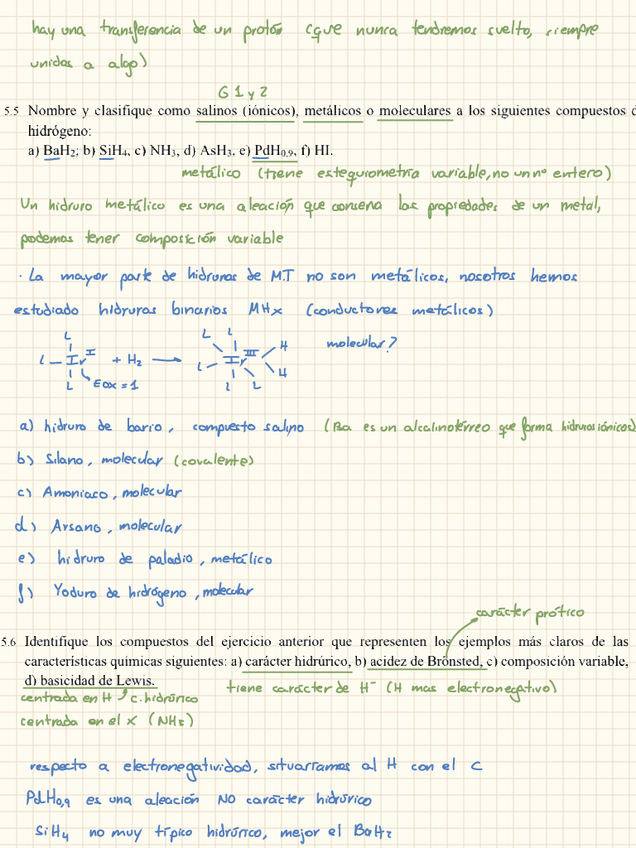 hay una transferencia de un protón (que nunca tendremos suelto, siempre
unidos a algo)
G 1 y 2
5.5 Nombre y clasifique como salinos (iónicos), metálicos o moleculares a los siguientes compuestos d
hidrógeno:
a) BaH2; b) SiH4, c) NH3, d) AsH3, e) PdH0,9, f) HI.
metálico (tiene estequiometría variable, no un nº entero)
Un hidruro metálico es una aleación que conserva las propiedades de un metal,
podemos tener composición variable
· La mayor parte de hidruros de M.T no son metálicos, nosotros hemos
estudiado hidruros binarios MHx (conductores metálicos)
L L L
L – Ir I + H2 → L Ir III H molecular?
L L H
L Eox = 1 L L
a) hidruro de bario, compuesto salino (Ba es un alcalinotérreo que forma hidruros iónicos)
b) Silano, molecular (covalente)
c) Amoniaco, molecular
d) Arsano, molecular
e) hidruro de paladio, metálico
f) Yoduro de hidrógeno, molecular
carácter prótico
5.6 Identifique los compuestos del ejercicio anterior que representen los ejemplos más claros de las
características químicas siguientes: a) carácter hidrúrico, b) acidez de Brönsted, c) composición variable,
d) basicidad de Lewis.
tiene carácter de H⁻ (H mas electronegativo)
centrada en H c. hidrúrico
centrada en el X (NH3)
respecto a electronegatividad, situaríamos al H con el C
PdH0,9 es una aleación NO carácter hidrúrico
SiH4 no muy típico hidrúrico, mejor el BaH2